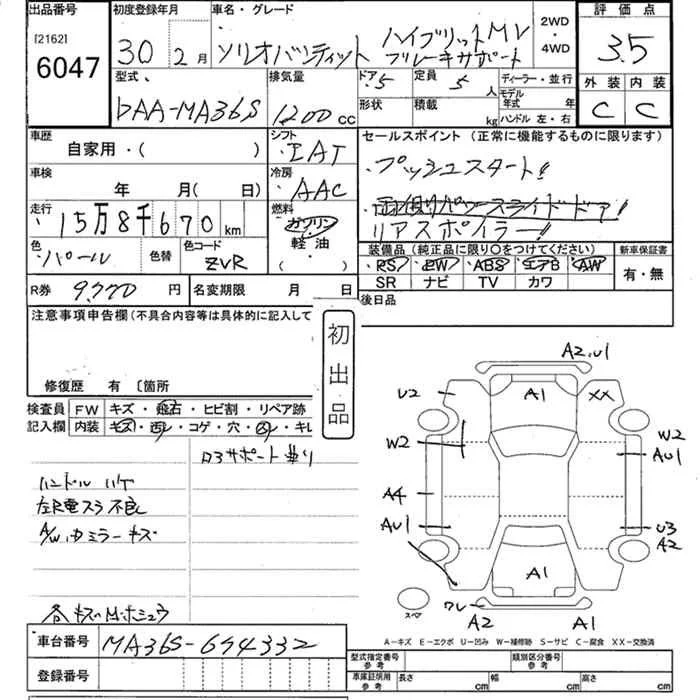 出品番号
[2162]
6047
初度登録年月
30年2月
車名・グレード
ソリオバンディット
ハイブリットMV
ブレーキサポート
2WD
・
4WD
評価点
3.5
外装 内装
C C
型式
DAA-MA36S
排気量
1200 cc
ドア 5
定員 5人
ディーラー・並行
形状
積載 kg
モデル年式 年
ハンドル 左・右
車歴
自家用・( )
シフト
IAT
セールスポイント (正常に機能するものに限ります)
・プッシュスタート!!
・両側パワースライドドア!!
リアスポイラー!!
車検
年 月( 日)
冷房
AAC
走行
15万8千670 km
燃料
ガソリン
軽油
・( )
色
パール
色替
色コード
ZVR
装備品 (純正品に限り○をつけてください)
新車保証書
・PS ・PW ・ABS ・エアB ・AW
SR ナビ TV カワ
有・無
R券 9,770 円
名変期限 月 日
後日品
注意事項申告欄 (不具合内容等は具体的に記入して
初出品
修復歴 有 〔箇所
検査員記入欄
FW キズ・飛石・ヒビ割・リペア跡
内装 キズ・・コゲ・穴・・キレ
ロ3サポート
ハンドル ハゲ
左R電スラ不良
A/W カミラーキズ
各キズ M.ホシュウ
A2.U1
U2
A1
XX
W2
W2
AU1
A4
AU1
U3
A2
A1
ワレ
A2
A1
スペア
A-キズ E-エクボ U-凹み W-補修跡 S-サビ C-腐食 XX-交換済
車台番号 MA36S-694332
登録番号
型式指定番号
参考
類別区分番号
参考
車庫証明用
参考
長さ cm
幅 cm
高さ cm